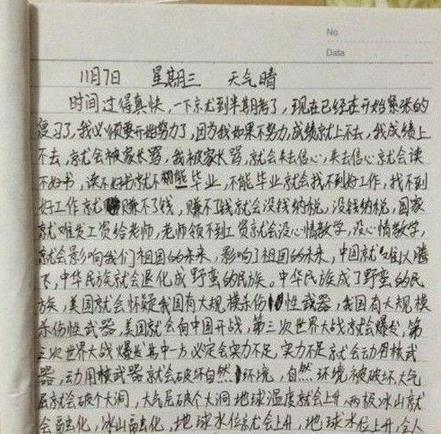 No.
Data
11月7日 星期三 天气晴
时间过得真快,一下就到半期考了,现在已经在开始紧张的
复习了,我必须要开始努力了,因为我如果不努力,成绩就上不去,我成绩上
不去,就会被家长骂,我被家长骂,就会失去信心,失去信心就会读
不好书,读不好书就不能毕业,不能毕业就会找不到好工作,我找不到
好工作就赚不了钱,赚不了钱就会没钱纳税,没钱纳税,国家
就难发工资给老师,老师领不到工资就会没心情教学,没心情教学,
就会影响我们祖国的未来,影响了祖国的未来,中国就难以腾
飞,中华民族就会退化成野蛮的民族。中华民族成了野蛮的民
族,美国就会怀疑我国有大规模杀伤性武器,我国有大规模
杀伤性武器,美国就会向中国开战,第三次世界大战就会爆发,第
三次世界大战爆发其中一方必定会实力不足,实力不足就会动用核武
器,动用核武器就会破坏自然环境,自然环境被破坏,大气
层就会破个大洞,大气层破个大洞地球温度就会上升,两极冰山就
会融化,冰山融化,地球水位就会上升,地球水位上升,全人